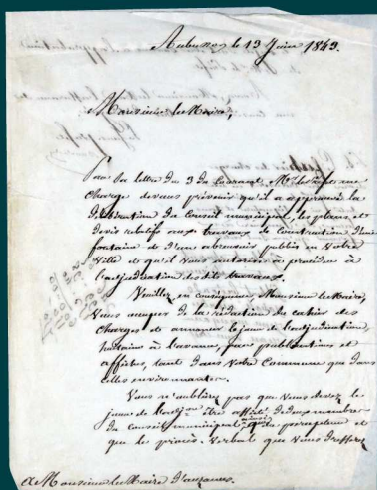 Aubusson le 13 Juin 1849.
Monsieur le Maire,
Par sa lettre du 3 du Courant, Mr le Préfet me
charge de vous prévenir qu'il a approuvé la
délibération du Conseil municipal, les plans et
devis relatifs aux travaux de Construction d'une
fontaine et d'un abreuvoir publics en Votre
Ville et qu'il vous autorise à procéder à
l'adjudication des dits travaux.
Veuillez, en conséquence, Monsieur le Maire,
vous occuper de la rédaction du cahier des
Charges et annoncer le jour de l'adjudication,
à l'avance, par publications et
affiches, tant dans Votre Commune que dans
celles environnantes.
Vous n'oublierez pas que vous devez le
jour de être assisté de deux membres
du Conseil municipal ainsi que du percepteur et
que le procès-Verbal que vous dresserez
A Monsieur le Maire d'auzances.